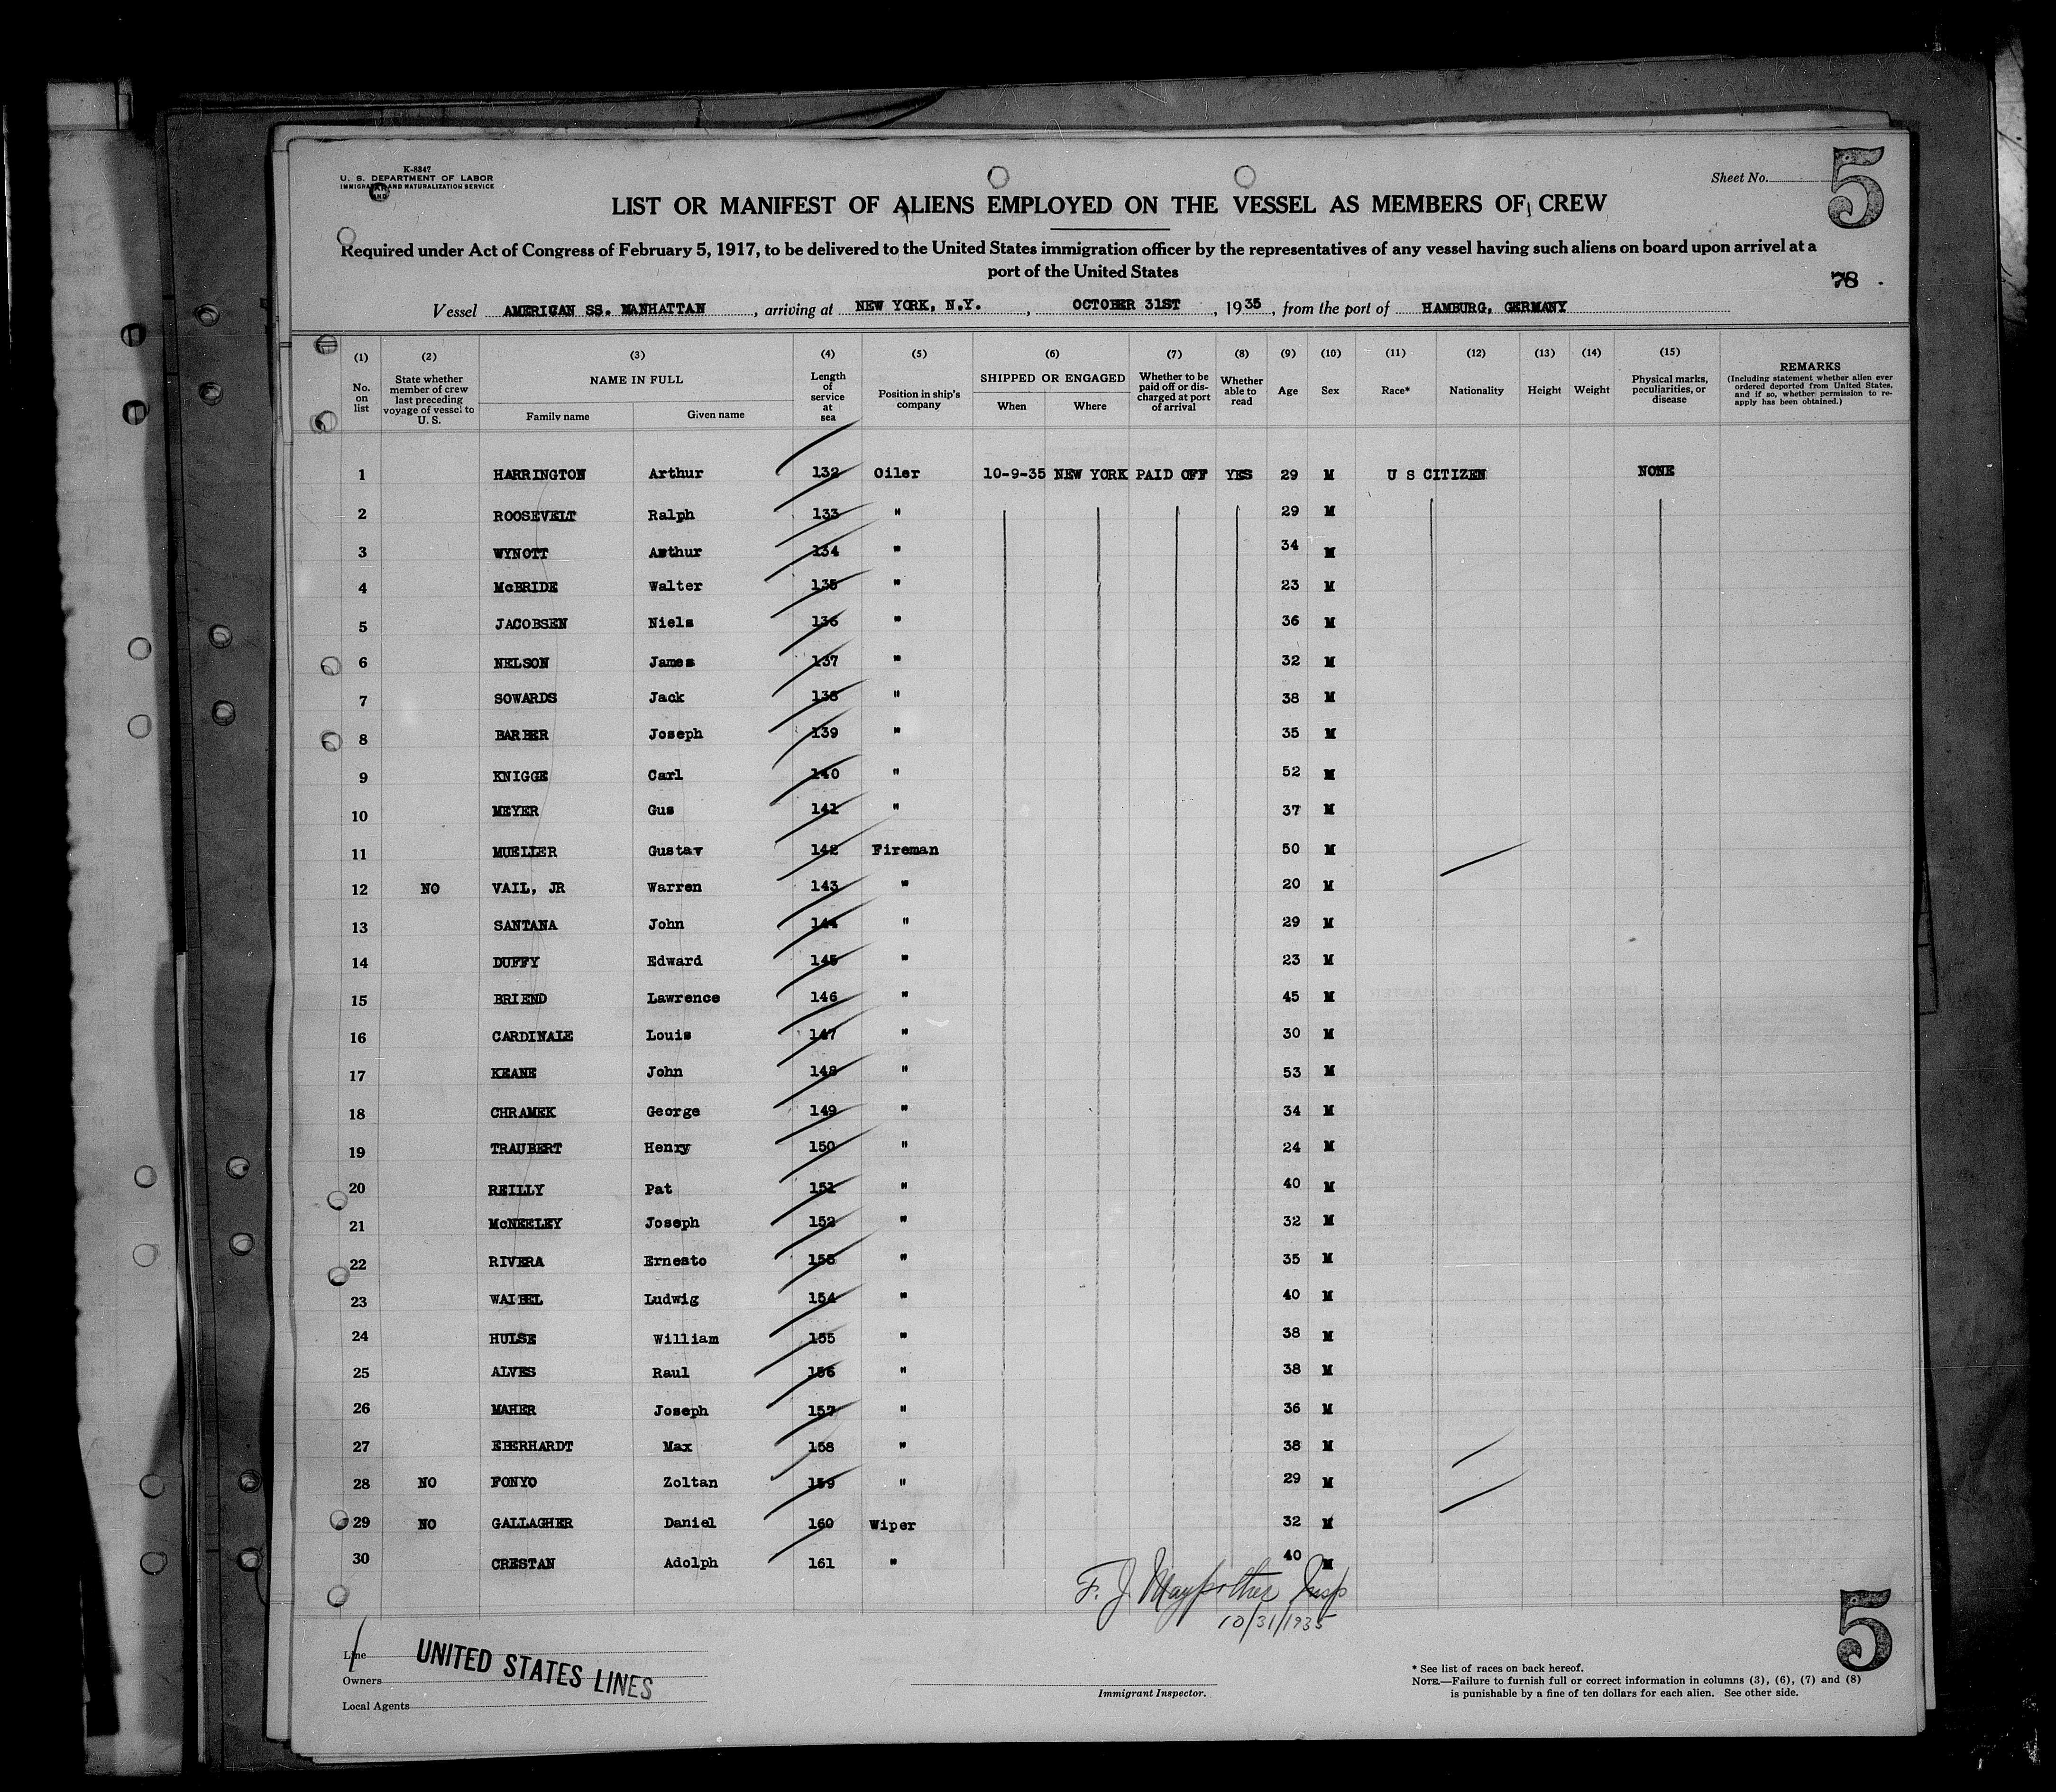 K-8347
U. S. DEPARTMENT OF LABOR
IMMIGRATION AND NATURALIZATION SERVICE
Sheet No. 5
LIST OR MANIFEST OF ALIENS EMPLOYED ON THE VESSEL AS MEMBERS OF CREW
Required under Act of Congress of February 5, 1917, to be delivered to the United States immigration officer by the representatives of any vessel having such aliens on board upon arrival at a
port of the United States
78
Vessel AMERICAN SS. MANHATTAN, arriving at NEW YORK, N.Y., OCTOBER 31ST, 1935, from the port of HAMBURG, GERMANY
(1) (2) (3) (4) (5) (6) (7) (8) (9) (10) (11) (12) (13) (14) (15)
No. on list
State whether member of crew last preceding voyage of vessel to U. S.
NAME IN FULL
Family name
Given name
Length of service at sea
Position in ship's company
SHIPPED OR ENGAGED
When
Where
Whether to be paid off or discharged at port of arrival
Whether able to read
Age
Sex
Race*
Nationality
Height
Weight
Physical marks, peculiarities, or disease
REMARKS
(Including statement whether alien ever ordered deported from United States, and if so, whether permission to reapply has been obtained.)
1 HARRINGTON Arthur 132 Oiler 10-9-35 NEW YORK PAID OFF YES 29 M U S CITIZEN NONE
2 ROOSEVELT Ralph 133 " 29 M
3 WYNOTT Arthur 134 " 34 M
4 McBRIDE Walter 135 " 23 M
5 JACOBSEN Niels 136 " 36 M
6 NELSON James 137 " 32 M
7 SOWARDS Jack 138 " 38 M
8 BARBER Joseph 139 " 35 M
9 KNIGGE Carl 140 " 52 M
10 MEYER Gus 141 " 37 M
11 MUELLER Gustav 142 Fireman 50 M
12 NO VAIL, JR Warren 143 " 20 M
13 SANTANA John 144 " 29 M
14 DUFFY Edward 145 " 23 M
15 BRIEND Lawrence 146 " 45 M
16 CARDINALE Louis 147 " 30 M
17 KEANE John 148 " 53 M
18 CHRAMEK George 149 " 34 M
19 TRAUBERT Henry 150 " 24 M
20 REILLY Pat 151 " 40 M
21 McNEELEY Joseph 152 " 32 M
22 RIVERA Ernesto 153 " 35 M
23 WAIBEL Ludwig 154 " 40 M
24 HULSE William 155 " 38 M
25 ALVES Raul 156 " 38 M
26 MAHER Joseph 157 " 36 M
27 EBERHARDT Max 158 " 38 M
28 NO FONYO Zoltan 159 " 29 M
29 NO GALLAGHER Daniel 160 Wiper 32 M
30 CRESTAN Adolph 161 " 40 M
F. J. Maypother Insp
10/31/1935
Line
Owners UNITED STATES LINES
Local Agents
Immigrant Inspector.
5
* See list of races on back hereof.
NOTE.—Failure to furnish full or correct information in columns (3), (6), (7) and (8)
is punishable by a fine of ten dollars for each alien. See other side.